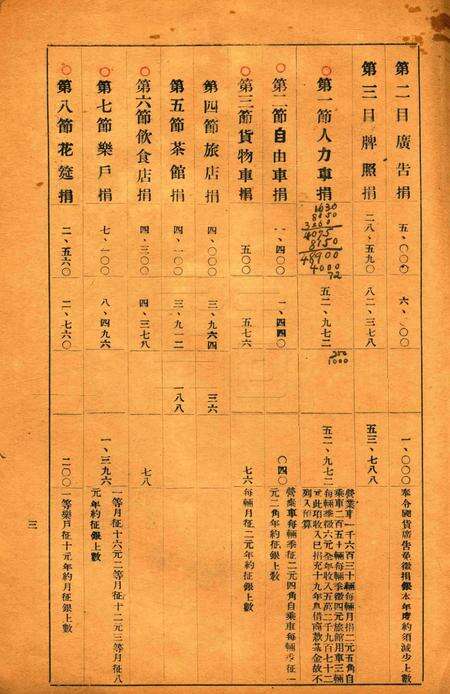 第二目廣告捐 五、〇〇〇 六、〇〇 一、〇〇〇 奉令國貨廣告免徵捐銀本年度約須減少上數
第三目牌照捐 二八、五九〇 八二、三七八 五三、七八八
第一節人力車捐 五二、九七二 五二、九七二
營業車一千六百三十輛每輛月捐二元五角自
乘車二百五十輛每輛季徵四元旅館用車三輛
每輛季徵六元全年收入五萬二千九百七十二
元此項收入已指充十九年 借商款基金故不
列入預算
1630
8150
3260
4075
8150
48900
4000
72
250
1000
第二節自由車捐 一、四〇〇 一、四四〇 〇四〇
營乘車每輛季征二元四角自乘車每輛季征一
元二角年約征銀上數
第三節貨物車捐 五〇〇 五七六 七六 每輛月征二元年約征銀上數
第四節旅店捐 四、〇〇〇 三、九六四 三六
第五節茶館捐 四、一〇〇 三、九一二 一八八
第六節飲食店捐 四、三〇〇 四、三七八 七八
第七節樂戶捐 七、一〇〇 八、四九六 一、三九六
一等月征十六元二等月征十二元三等月征八
元年約征銀上數
第八節花筵捐 二、五六〇 二、七六〇 二〇〇 一等樂戶征十元年約月征銀上數
三